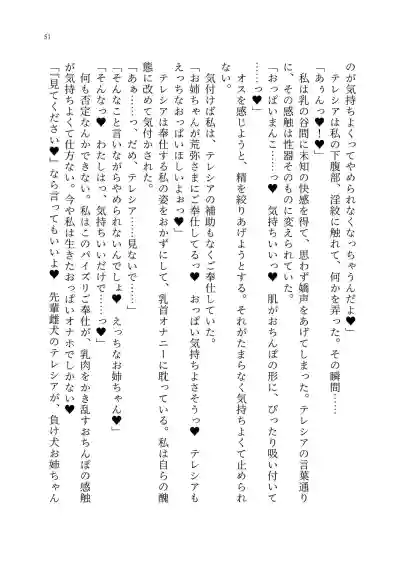 51
のが気持ちよくってやめられなくなっちゃうんだよ♥」
テレシアは私の下腹部、淫紋に触れて、何かを弄った。その瞬間……
「あぅんっ♥!♥」
私は乳の谷間に未知の快感を得て、思わず嬌声をあげてしまった。テレシアの言葉通り
に、その感触は性器そのものに変えられていた。
「おっぱいまんこ……っ♥ 気持ちいいっ♥ 肌がおちんぽの形に、ぴったり吸い付いて
……っ♥」
オスを感じようと、精を絞りあげようとする。それがたまらなく気持ちよくて止められ
ない。
気付けば私は、テレシアの補助もなくご奉仕していた。
「お姉ちゃんが荒弥さまにご奉仕してるっ♥ おっぱい気持ちよさそうっ♥ テレシアも
えっちなおっぱいほしいよぉっ♥」
テレシアは奉仕する私の姿をおかずにして、乳首オナニーに耽っている。私は自らの醜
態に改めて気付かされた。
「あぁ……っ、だめ、テレシア……見ないで……」
「そんなこと言いながらやめられないんでしょ♥ えっちなお姉ちゃん♥」
「そんなっ♥ わたしはっ、気持ちいいだけで……♥」
何も否定なんかできない。私はこのパイズリご奉仕が、乳肉をかき乱すおちんぽの感触
が気持ちよくて仕方ない。今や私は生きたおっぱいオナホでしかない♥
「『見てください♥』なら言ってもいいよ♥ 先輩雌犬のテレシアが、負け犬お姉ちゃん